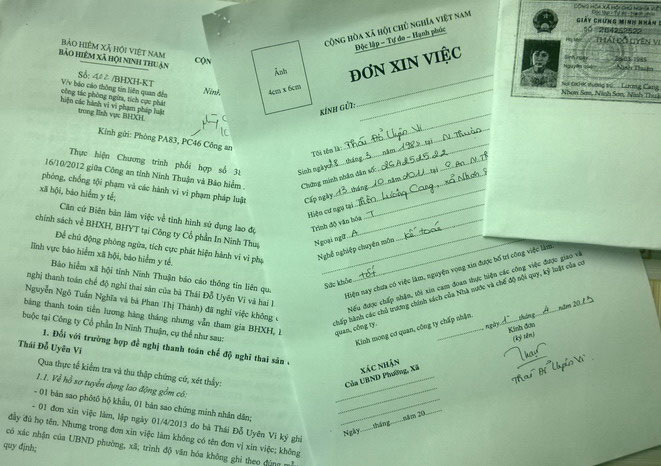 BẢO HIỂM XÃ HỘI VIỆT NAM
BẢO HIỂM XÃ HỘI NINH THUẬN
CỘN
Số: /BHXH-KT
Ninh
V/v báo cáo thông tin liên quan đến
công tác phòng ngừa, tích cực phát
hiện các hành vi vi phạm pháp luật
trong lĩnh vực BHXH.
Kính gửi: Phòng PA83, PC46 Công an
Thực hiện Chương trình phối hợp số 38
16/10/2012 giữa Công an tỉnh Ninh Thuận và Bảo hiểm
phòng, chống tội phạm và các hành vi vi phạm pháp luật
xã hội, bảo hiểm y tế;
Căn cứ Biên bản làm việc về tình hình sử dụng lao độ
chính sách về BHXH, BHYT tại Công ty Cổ phần In Ninh Thuậ
Để chủ động phòng ngừa, tích cực phát hiện hành vi vi p
lĩnh vực bảo hiểm xã hội, bảo hiểm y tế.
Bảo hiểm xã hội tỉnh Ninh Thuận báo cáo thông tin liên qua
nghị thanh toán chế độ nghỉ thai sản của bà Thái Đỗ Uyên Vi và hai l
Nguyễn Ngô Tuấn Nghĩa và bà Phan Thị Thành) đã nghỉ việc không c
bảng thanh toán tiền lương hàng tháng nhưng vẫn tham gia BHXH,
buộc tại Công ty Cổ phần In Ninh Thuận, cụ thể như sau:
1. Đối với trường hợp đề nghị thanh toán chế độ nghỉ thai sản
Thái Đỗ Uyên Vi
Qua thực tế kiểm tra và thu thập chứng cứ, xét thấy:
1.1. Về hồ sơ tuyển dụng lao động gồm có:
- 01 bản sao phôtô hộ khẩu, 01 bản sao chứng minh nhân dân;
- 01 đơn xin việc làm, lập ngày 01/4/2013 do bà Thái Đỗ Uyên Vi ký ghi
đầy đủ họ tên. Nhưng trong đơn xin việc làm không có tên đơn vị xin việc; không
có xác nhận của UBND phường, xã; trình độ văn hóa không ghi theo đúng
quy định;
CỘNG HÒA XÃ HỘI CHỦ NGHĨA VIỆT NAM
Độc lập – Tự do – Hạnh phúc
Ảnh
4cm x 6cm
ĐƠN XIN VIỆC
KÍNH GỬI:
Tôi tên là: Thái Đỗ Uyên Vi
Sinh ngày 28 tháng 3 năm 1985 tại N. Thuận
Chứng minh nhân dân số: 264252522
Cấp ngày 13 tháng 10 năm 2011 tại C.An N.Th
Hiện cư ngụ tại Thôn Lương Cang, xã Nhơn S
Trình độ văn hóa
Ngoại ngữ A
Nghề nghiệp chuyên môn kế toán
Sức khỏe tốt
Hiện nay chưa có việc làm, nguyện vọng xin được bố trí công việc làm
Nếu được chấp nhận, tôi xin cam đoan thực hiện các công việc được giao và
chấp hành các chủ trương chính sách của Nhà nước và chế độ nội quy, kỷ luật của cơ
quan, công ty.
Kính mong cơ quan, công ty chấp nhận.
ngày 1 tháng 4 năm 2013
Kính đơn
(ký tên)
Thái Đỗ Uyên Vi
XÁC NHẬN
Của UBND Phường, Xã
Ngày......tháng......năm 20......
CỘNG HÒA XÃ HỘI CHỦ NGHĨA VIỆT NAM
Độc lập - Tự do - Hạnh phúc
GIẤY CHỨNG MINH NHÂN
SỐ 264252522
THÁI ĐỖ UYÊN VI
1985
Ninh Thuận
Lương Cang
Nhơn Sơn, Ninh Sơn, Ninh Thuận